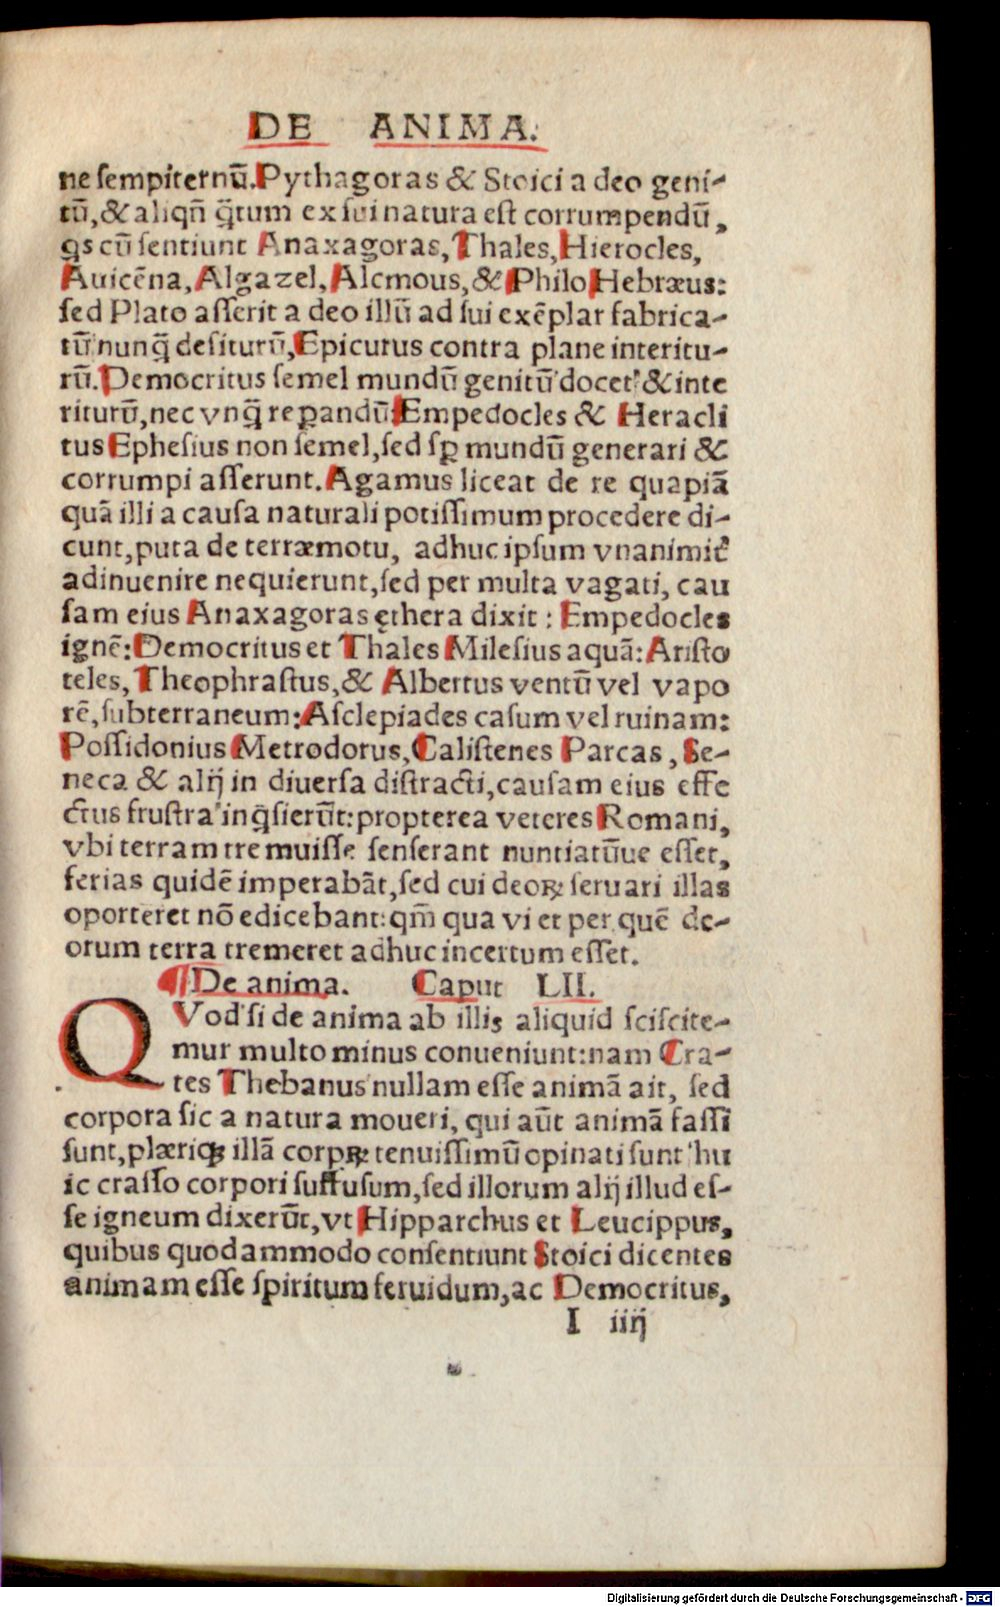 DE ANIMA.
ne sempiternū. Pythagoras & Stoici a deo geni-
tū, & aliqn̄ q̄tum ex sui natura est corrumpendū,
qs cū sentiunt Anaxagoras, Thales, Hierocles,
Auicēna, Algazel, Alcmous, & Philo Hebræus:
sed Plato asserit a deo illū ad sui exēplar fabrica-
tū nunq̄ desiturū, Epicurus contra plane interitu-
rū. Democritus semel mundū genitū docet & inte
riturū, nec vnq̄ reꝑandū: Empedocles & Heracli
tus Ephesius non semel, sed sꝑ mundū generari &
corrumpi asserunt. Agamus liceat de re quapiā
quā illi a causa naturali potissimum procedere di-
cunt, puta de terræmotu, adhuc ipsum vnanimit̄
adinuenire nequierunt, sed per multa vagati, cau
sam eius Anaxagoras ęthera dixit: Empedocles
ignē: Democritus et Thales Milesius aquā: Aristo
teles, Theophrastus, & Albertus ventū vel vapo
rē, subterraneum: Asclepiades casum vel ruinam:
Possidonius Metrodorus, Calistenes Parcas, Se-
neca & alij in diuersa distracti, causam eius effe
ctus frustra inq̄sierūt: propterea veteres Romani,
vbi terram tremuisse senserant nuntiatūue esset,
ferias quidē imperabāt, sed cui deoꝝ seruari illas
oporteret nō edicebant: qm̄ qua vi et per quē de-
orum terra tremeret adhuc incertum esset.
¶ De anima. Caput LII.
QVod si de anima ab illis aliquid sciscite-
mur multo minus conueniunt: nam Cra-
tes Thebanus nullam esse animā ait, sed
corpora sic a natura moueri, qui aūt animā fassi
sunt, plæriqꝫ illā corpꝝ tenuissimū opinati sunt hu
ic crasso corpori suffusum, sed illorum alij illud es-
se igneum dixerūt, vt Hipparchus et Leucippus,
quibus quodammodo consentiunt Stoici dicentes
animam esse spiritum feruidum, ac Democritus,
I iiij
Digitalisierung gefördert durch die Deutsche Forschungsgemeinschaft - DFG